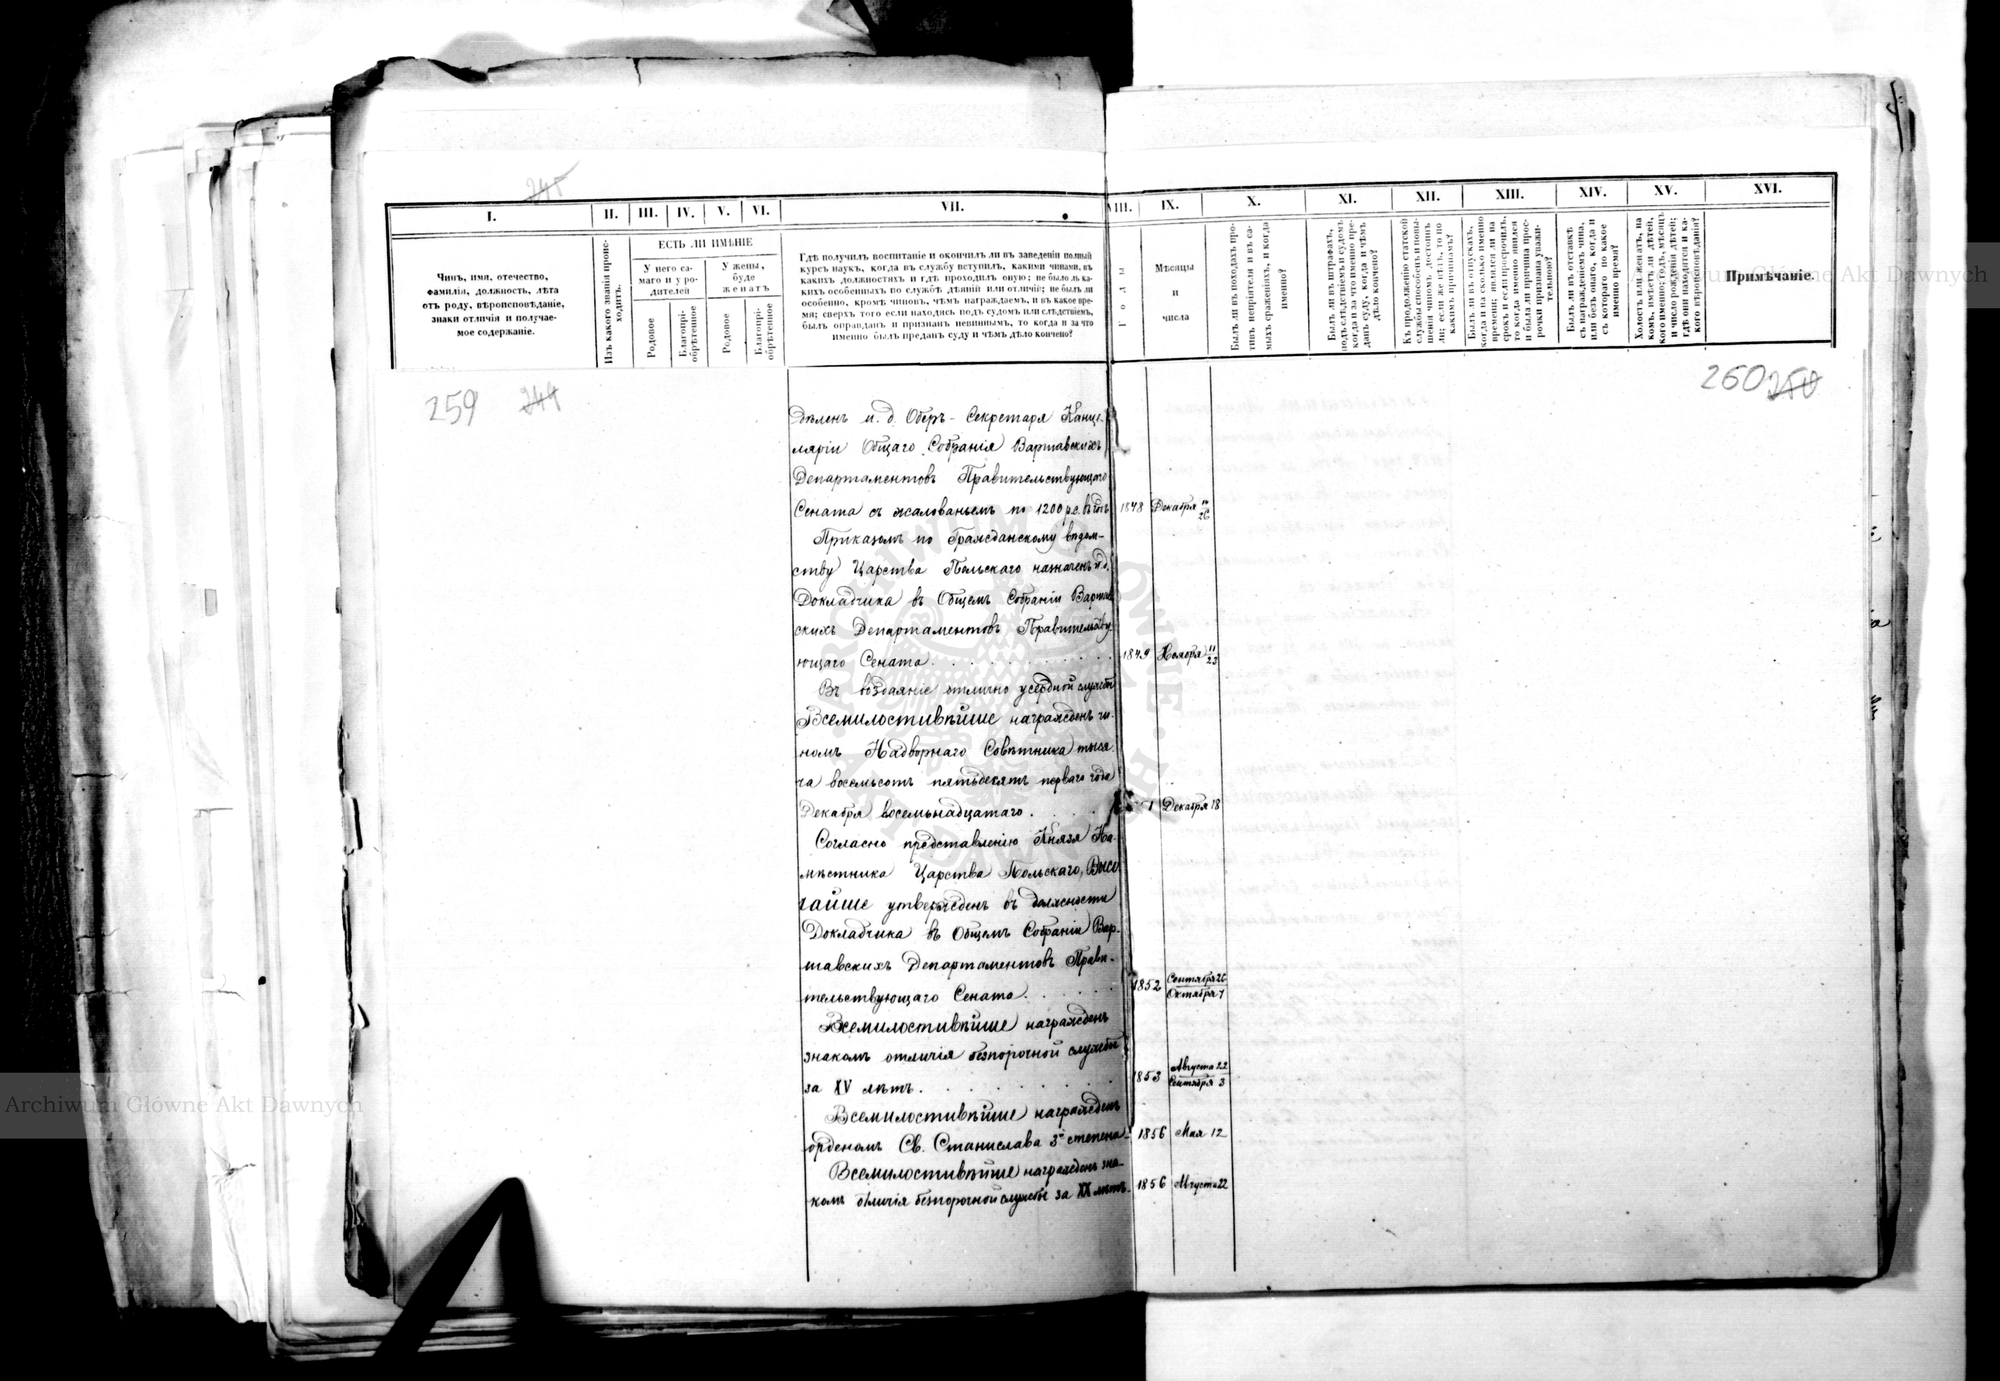 245
I.
II.
III.
IV.
V.
VI.
VII.
VIII.
IX.
X.
XI.
XII.
XIII.
XIV.
XV.
XVI.
Чинъ, имя, отечество,
фамилія, должность, лѣта
отъ роду, вѣроисповѣданіе,
знаки отличія и получае-
мое содержаніе.
Изъ какого званія проис-
ходитъ.
ЕСТЬ ЛИ ИМѢНІЕ
У него са-
маго и у ро-
дителей
У жены,
буде
женатъ
Родовое
Благопрі-
обрѣтенное
Родовое
Благопрі-
обрѣтенное
Гдѣ получилъ воспитаніе и окончилъ ли въ заведеніи полный
курсъ наукъ, когда въ службу вступилъ, какими чинами, въ
какихъ должностяхъ и гдѣ проходилъ оную; не было ли ка-
кихъ особенныхъ по службѣ дѣяній или отличій; не былъ ли
особенно, кромѣ чиновъ, чѣмъ награждаемъ, и въ какое вре-
мя; сверхъ того если находясь подъ судомъ или слѣдствіемъ,
былъ оправданъ и признанъ невиннымъ, то когда и за что
именно былъ преданъ суду и чѣмъ дѣло кончено?
Годы
Мѣсяцы
и
числа
Былъ ли въ походахъ про-
тивъ непріятеля и въ са-
мыхъ сраженіяхъ, и когда
именно?
Былъ ли въ штрафахъ,
подъ слѣдствіемъ и судомъ
когда и за что именно пре-
данъ суду, когда и чѣмъ
дѣло кончено?
Къ продолженію статской
службы способенъ и повы-
шенія чиномъ достоинъ
ли; если же нѣтъ, то по
какимъ причинамъ?
Былъ ли въ отпускахъ,
когда и на сколько именно
времени; явился ли на
срокъ и если просрочилъ,
то когда именно явился
и была ли причина прос-
рочки признана уважи-
тельною?
Былъ ли въ отставкѣ
съ награжденіемъ чина,
или безъ онаго, когда и
съ котораго по какое
именно время?
Холостъ или женатъ, на
комъ, имѣетъ ли дѣтей,
кого именно; годъ, мѣсяцъ
и число рожденія дѣтей;
гдѣ они находятся и ка-
кого вѣроисповѣданія?
Примѣчаніе.
259 244
260 250
дѣленъ и. д. Оберъ-Секретаря Канце-
ляріи Общаго Собранія Варшавскихъ
Департаментовъ Правительствующаго
Сената съ жалованьемъ по 1200 р.с. въ годъ 1848 Декабря 14/26
Приказомъ по Гражданскому вѣдом-
ству Царства Польскаго назначенъ и. д.
Докладчика въ Общемъ Собраніи Варшав
скихъ Департаментовъ Правительству
ющаго Сената. 1849 Ноября 11/23
Въ воздаяніе отлично усердной службы
Всемилостивѣйше награжденъ чи-
номъ Надворнаго Совѣтника тыся
ча восемьсотъ пятьдесятъ перваго года
Декабря восемьнадцатаго. 1 Декабря 18
Согласно представленію Князя На-
мѣстника Царства Польскаго, Высо
чайше утвержденъ въ должности
Докладчика въ Общемъ Собраніи Вар-
шавскихъ Департаментовъ Прави-
тельствующаго Сената. 1852 Сентября 26 Октября 7
Всемилостивѣйше награжденъ
знакомъ отличія безпорочной службы
за XV лѣтъ. 1853 Августа 22 Сентября 3
Всемилостивѣйше награжденъ
орденомъ Св. Станислава 3й степени 1856 Мая 12
Всемилостивѣйше награжденъ зна-
комъ отличія безпорочной службы за XX лѣтъ. 1856 Августа 22
Archiwum Główne Akt Dawnych
Archiwum Główne Akt Dawnych